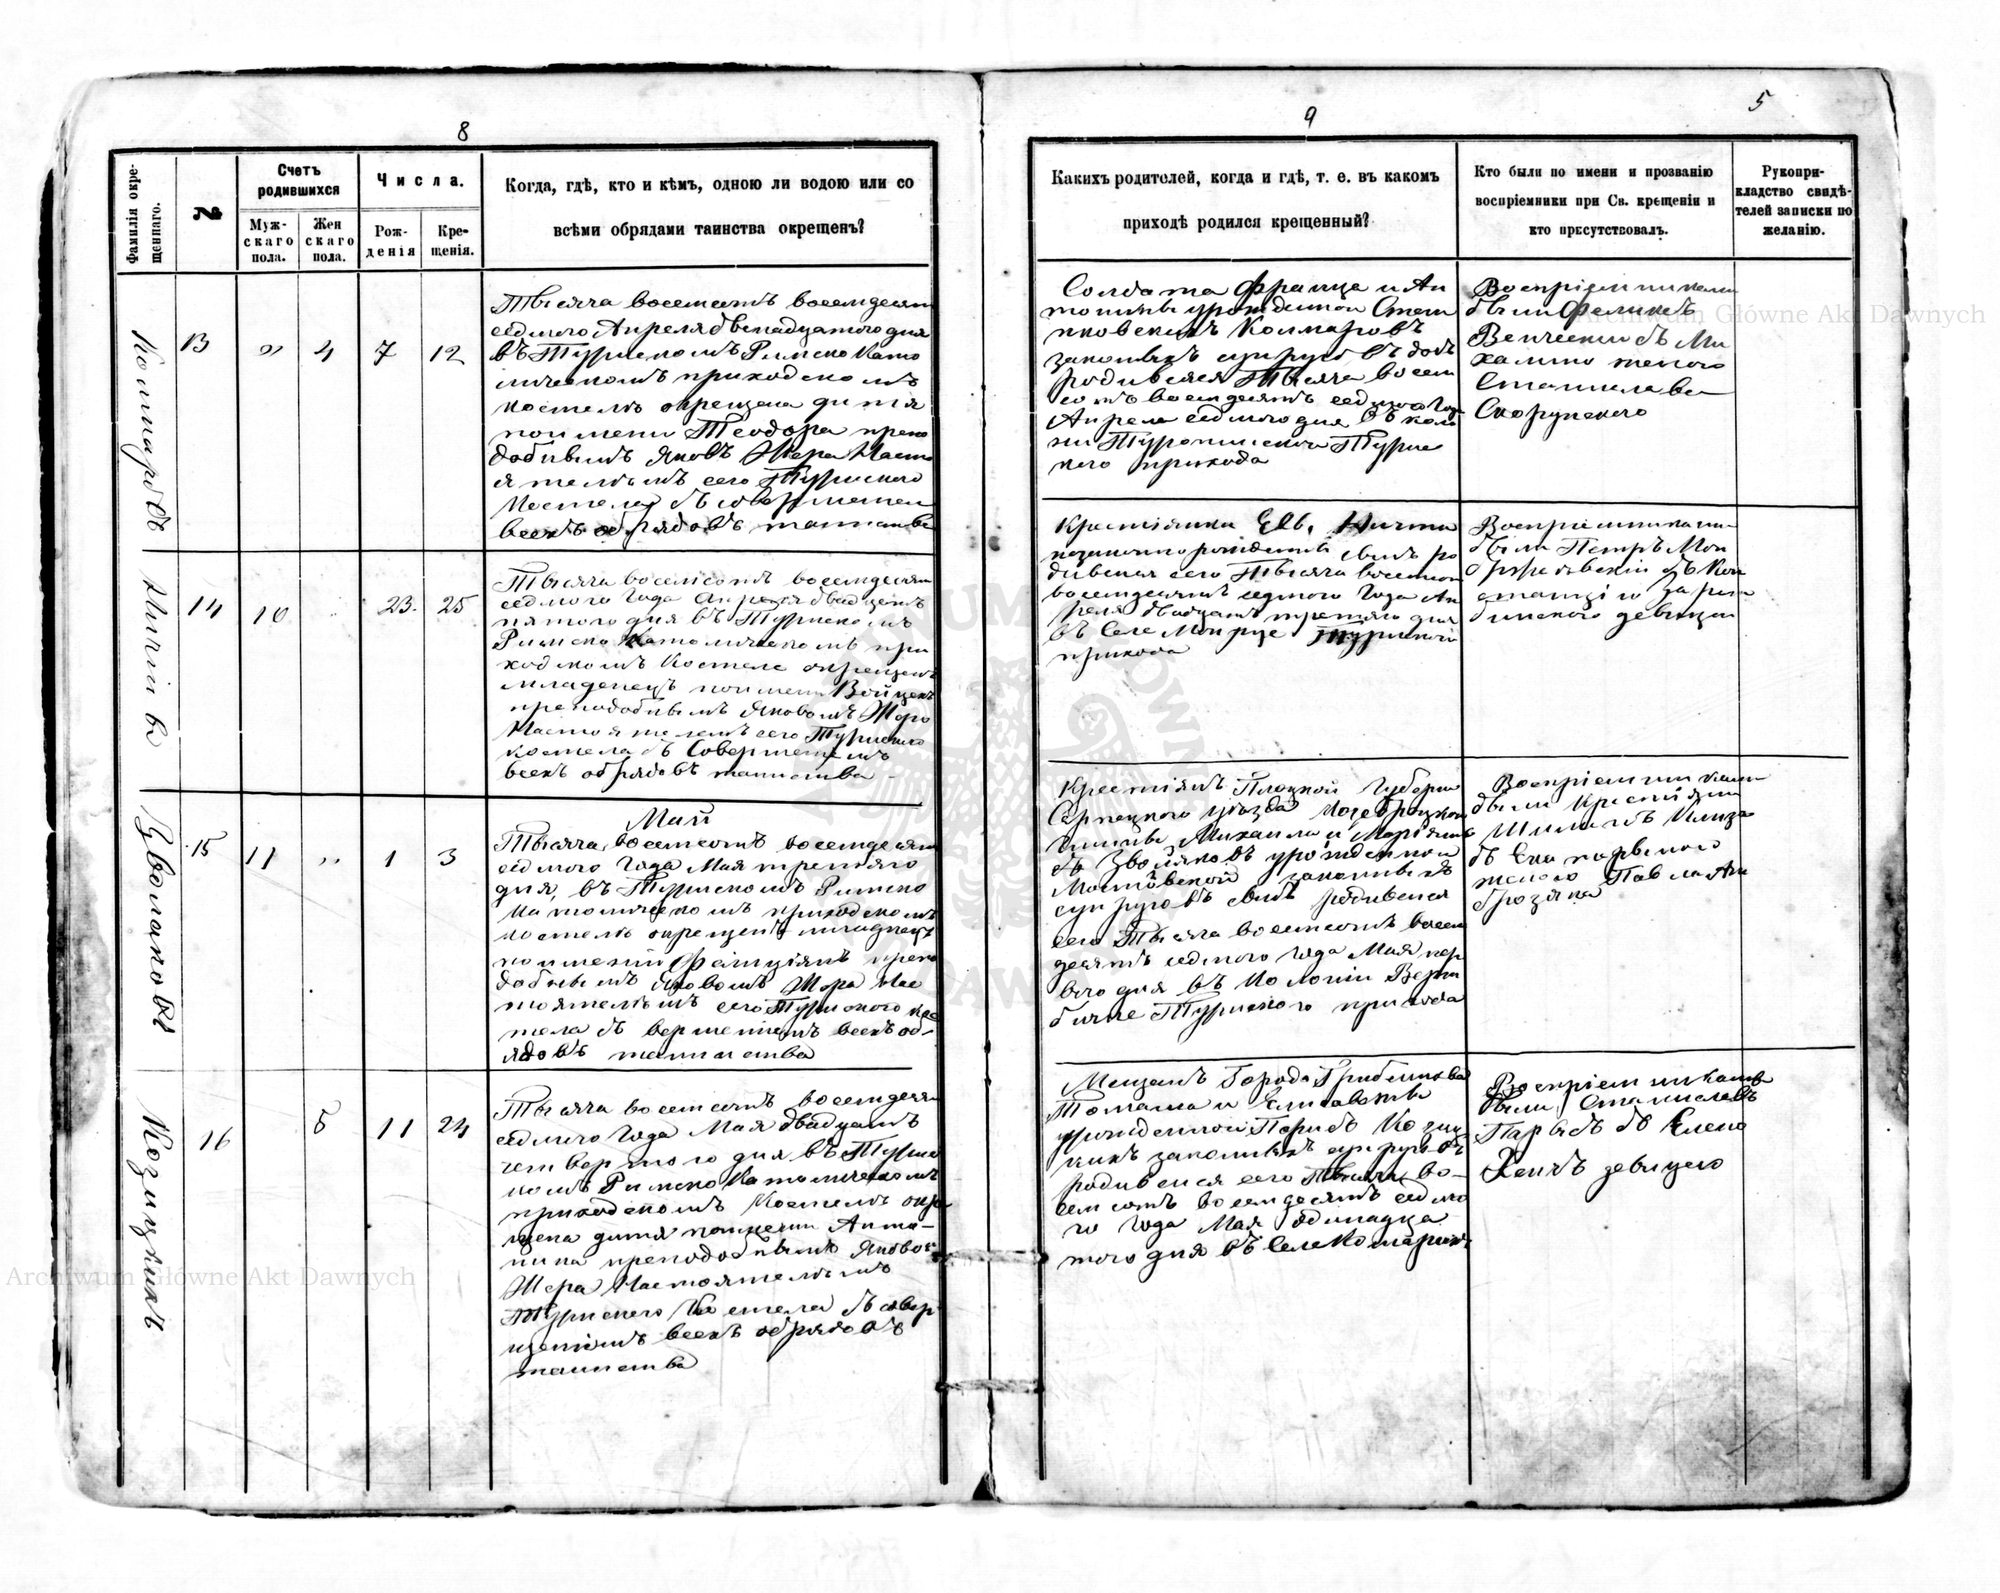 8
Фамилія окре-
щеннаго.
№
Счетъ
родившихся
Муж-
скаго
пола.
Жен
скаго
пола.
Числа.
Рож-
денія
Кре-
щенія.
Когда, гдѣ, кто и кѣмъ, одною ли водою или со
всѣми обрядами таинства окрещенъ?
Колмаровъ
13
"
4
7
12
Тысяча восемсотъ восемдесят
седмого Апреля двенадцатого дня
въ Туриском Римско Като
лическомъ приходскомъ
костелѣ окрещена дитя
по имени Теодора препо
добнымъ Яковъ Жера Насто
ятелемъ сего Туриского
Костела съ совершением
всехъ обрядовъ таинства
14
10
23.
25
Тысяча восемсотъ восемдесят
седмого Года Апреля двадцать
пятого дня въ Турискомъ
Римско Католическомъ при
ходском Костеле окрещенъ
младенецъ по имени Войцех
преподобнымъ Яковомъ Жера
Настоятелем сего Туриского
костела съ Совершенiемъ
всехъ обрядовъ таинства
Зволяковъ
15
11
"
1
3
Май
Тысяча восемсотъ восемдесят
седмого Года Мая третяго
дня, въ Турискомъ Римско
католическомъ приходскомъ
костелѣ окрещенъ младенецъ
по имени препо
добнымъ Яковомъ Жера Нас
тоятелемъ сего Туриского кос
тела съ вершениемъ всехъ об-
рядовъ таинства
Козицкихъ
16
5
11
24
Тысяча восемсотъ восемдесят
седмого Года Мая двадцать
четвертого дня въ Турис
комъ Римско Католическомъ
приходскомъ Костелѣ окре
щена дитя по имени Анто-
нина преподобнымъ Яковом
Жера Настоятелемъ
Туриского Костела съ совер
шениемъ всехъ обрядовъ
таинства
9
5
Какихъ родителей, когда и гдѣ, т. е. въ какомъ
приходѣ родился крещенный?
Кто были по имени и прозванію
воспріемники при Св. крещеніи и
кто присутствовалъ.
Рукопри-
кладство свидѣ-
телей записки по
желанію.
Солдата Франца и Ан
тонины урожденной
Колмаровъ
законныхъ супруговъ дочь
родивсяся Тысяча восем
сотъ восемдесятъ седмого Года
Апреля седмого дня въ коло
ни Туриc
кого прихода
Воспріемниками
были Феликсъ
съ Ми
халино женого
Станислава
Скорупского
Крестiянки Ев.
незаконно рожденный сынъ ро
дивсяся сего Тысяча восемсот
восемдесятъ седмого Года Ап
реля двадцать третяго дня
въ Селе Мокрце Туриского
прихода
Воспріемниками
были Петръ
съ Кон
станцiю
девицею
Крестiянъ Плоцкой Губерни
Серпецкого уѣзда
Гмины Михаила и Марiянны
съ Зволяковъ урожденной
законныхъ
супруговъ сынъ родивсяся
сего Тысяча восемсотъ восем
десятъ седмого Года Мая пер
вого дня въ Колонiи Верби
чне Туриского прихода
Воспріемниками
были Крестiяни
Шимонъ
съ Екатариною
женою Павла Ан
дрозяка
Мещанъ Города
Томаша и Елисаветы
урожденной Парисъ Козиц
кихъ законныхъ супруговъ
родивсяся сего Тысяча во-
семсотъ восемдесятъ седмо
го Года Мая одинадца
того дня въ Селе
Воспріемниками
были Станиславъ
Парысъ съ Елено
девицею
Archiwum Główne Akt Dawnych
Archiwum Główne Akt Dawnych